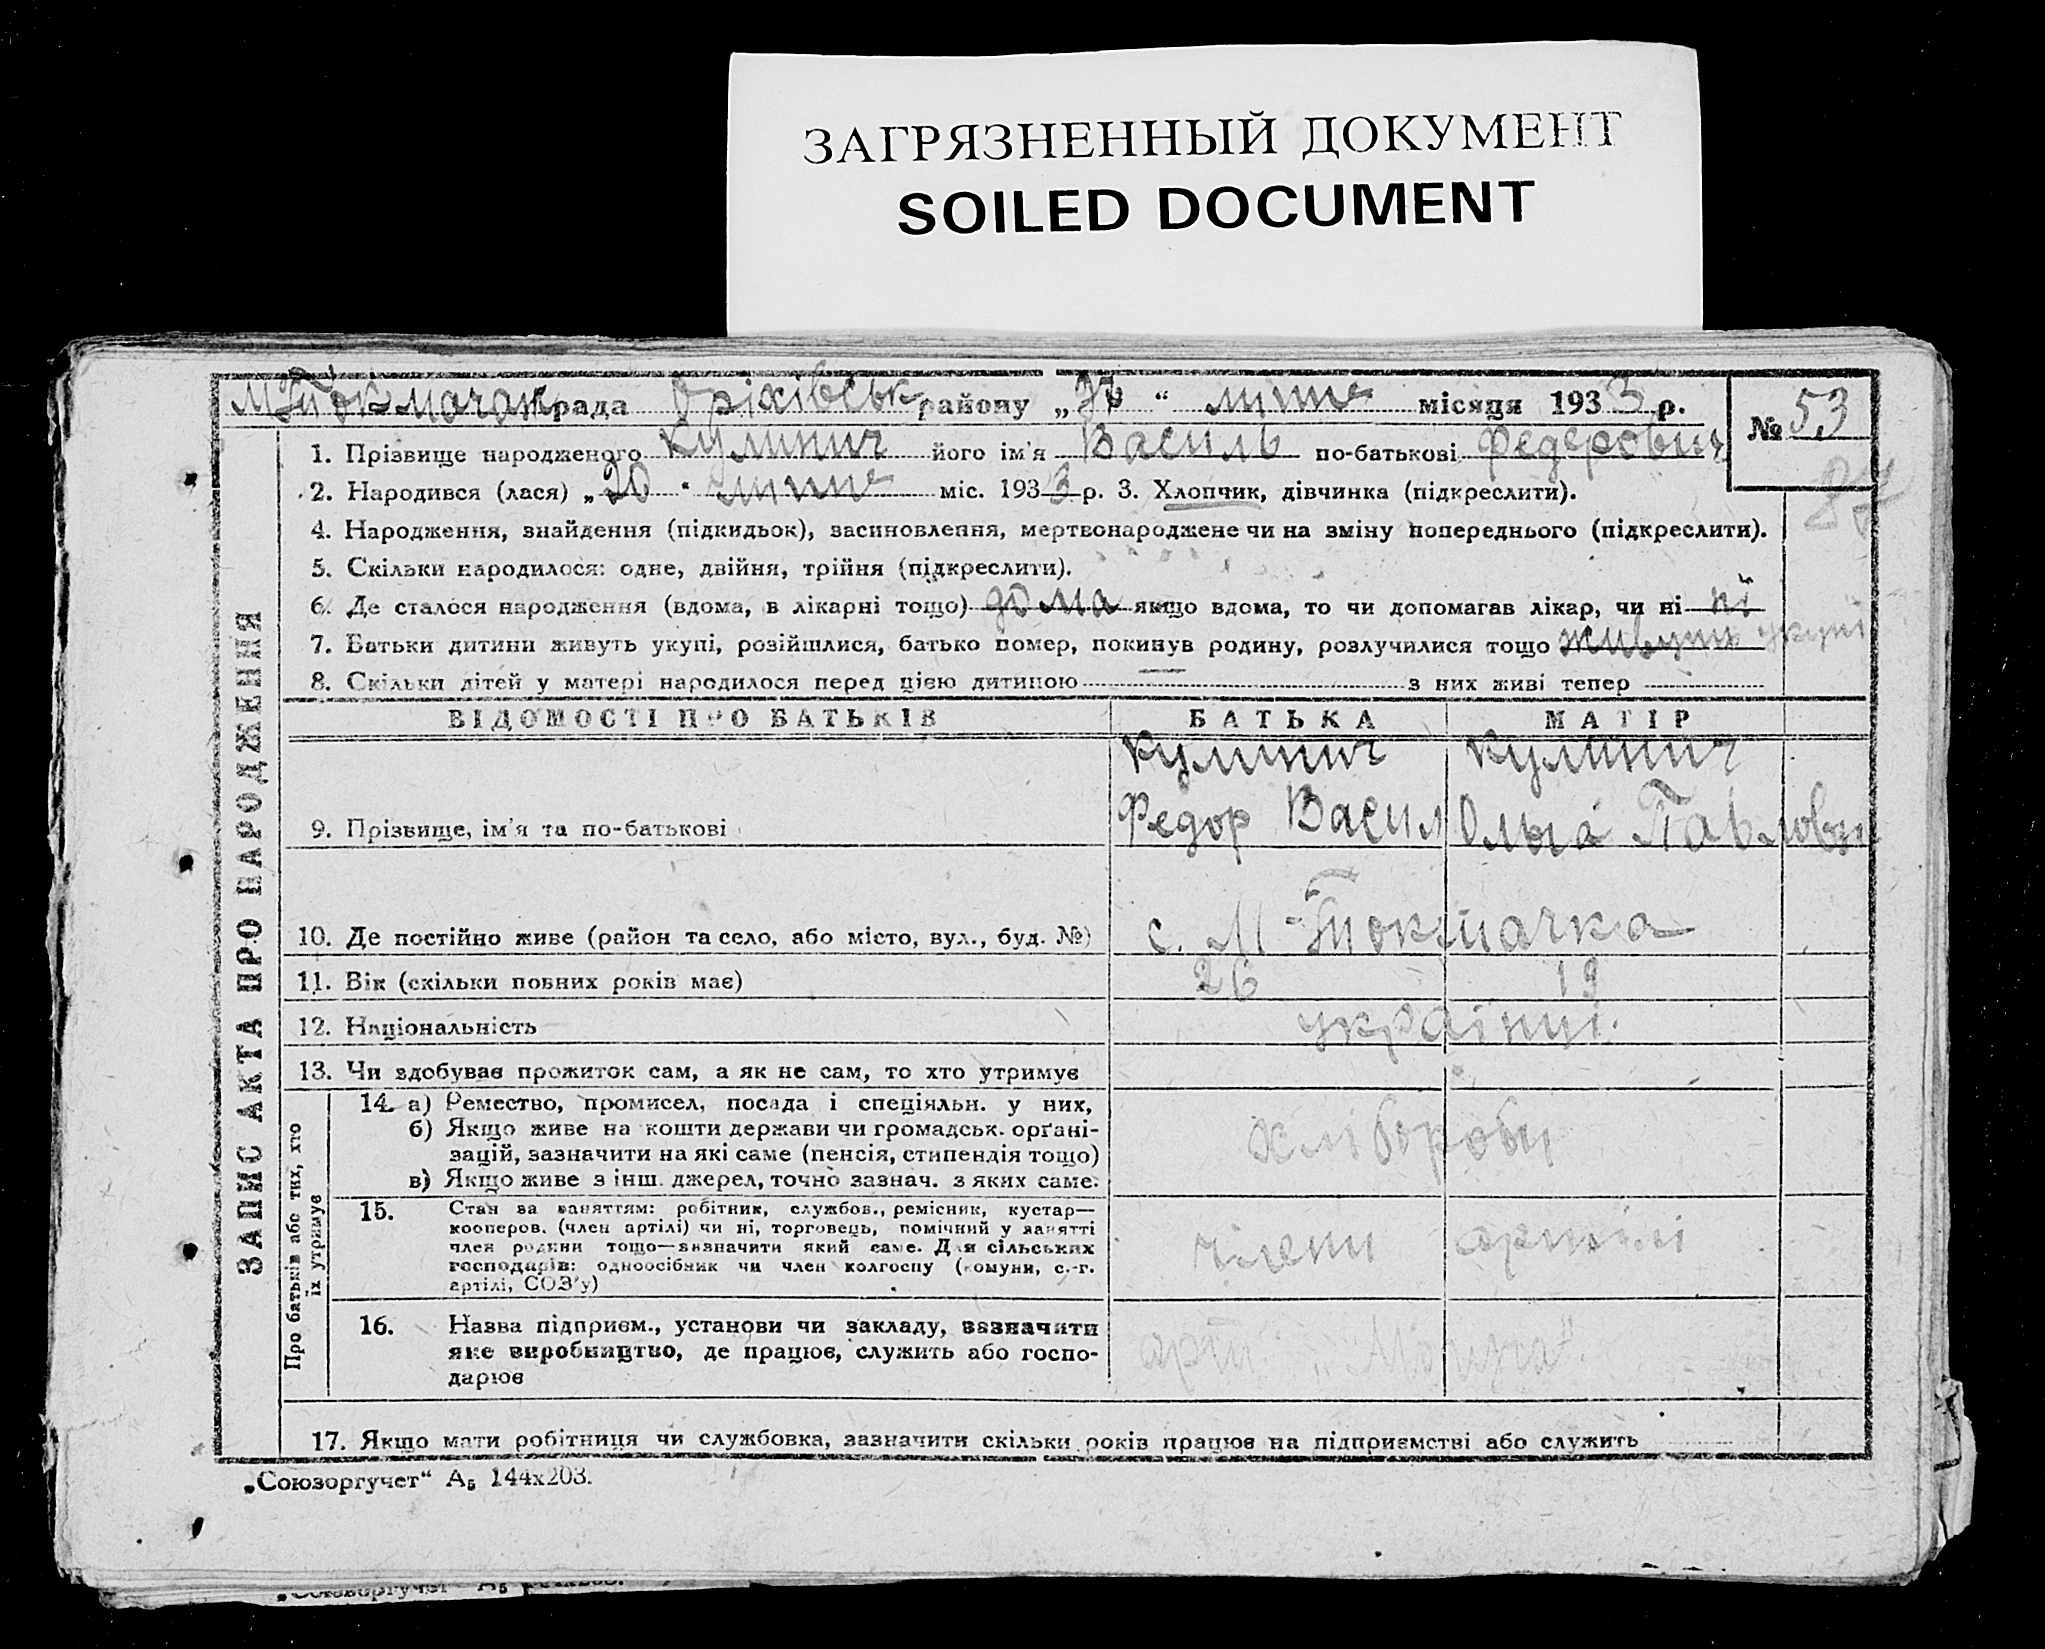 ЗАГРЯЗНЕННЫЙ ДОКУМЕНТ
SOILED DOCUMENT
рада Оріхівськ району „ “ липня місяця 1933 р.
№ 53
1. Прізвище народженого Кулинич його ім'я Василь по-батькові Федерович
87
2. Народився (лася) „20 “ липня міс. 1933 р. 3. Хлопчик, дівчинка (підкреслити).
4. Народження, знайдення (підкидьок), засиновлення, мертвонароджене чи на зміну попереднього (підкреслити).
5. Скільки народилося: одне, двійня, трійня (підкреслити).
6. Де сталося народження (вдома, в лікарні тощо) дома якщо вдома, то чи допомагав лікар, чи ні ні
7. Батьки дитини живуть укупі, розійшлися, батько помер, покинув родину, розлучилися тощо живуть укупі
8. Скільки дітей у матері народилося перед цією дитиною — з них живі тепер
ВІДОМОСТІ ПРО БАТЬКІВ БАТЬКА МАТІР
Кулинич Кулинич
9. Прізвище, ім'я та по-батькові Федор Васил Ольга Павловн
10. Де постійно живе (район та село, або місто, вул., буд. №) с. М-Токмачка
11. Вік (скільки повних років має) 26 19
12. Національність українці.
13. Чи здобуває прожиток сам, а як не сам, то хто утримує
14. а) Ремество, промисел, посада і спеціяльн. у них,
б) Якщо живе на кошти держави чи громадськ. орґані-
зацій, зазначити на які саме (пенсія, стипендія тощо)
в) Якщо живе з інш. джерел, точно зазнач. з яких саме.
хліборобы
15. Стан за заняттям: робітник, службов., ремісник, кустар—
кооперов. (член артілі) чи ні, торговець, помічний у занятті
член родини тощо—визначити який саме. Для сільських
господарів: одноосібник чи член колгоспу (комуни, с.-г.
артілі, СОЗ'у)
члени артілі
16. Назва підприєм., установи чи закладу, зазначити
яке виробництво, де працює, служить або госпо-
дарює
арт.
17. Якщо мати робітниця чи службовка, зазначити скільки років працює на підприємстві або служить
ЗАПИС АКТА ПРО НАРОДЖЕННЯ
Про батьків або тих, хто
їх утримує
„Союзоргучет“ А₅ 144х203.
„Союзоргучет“ А₅